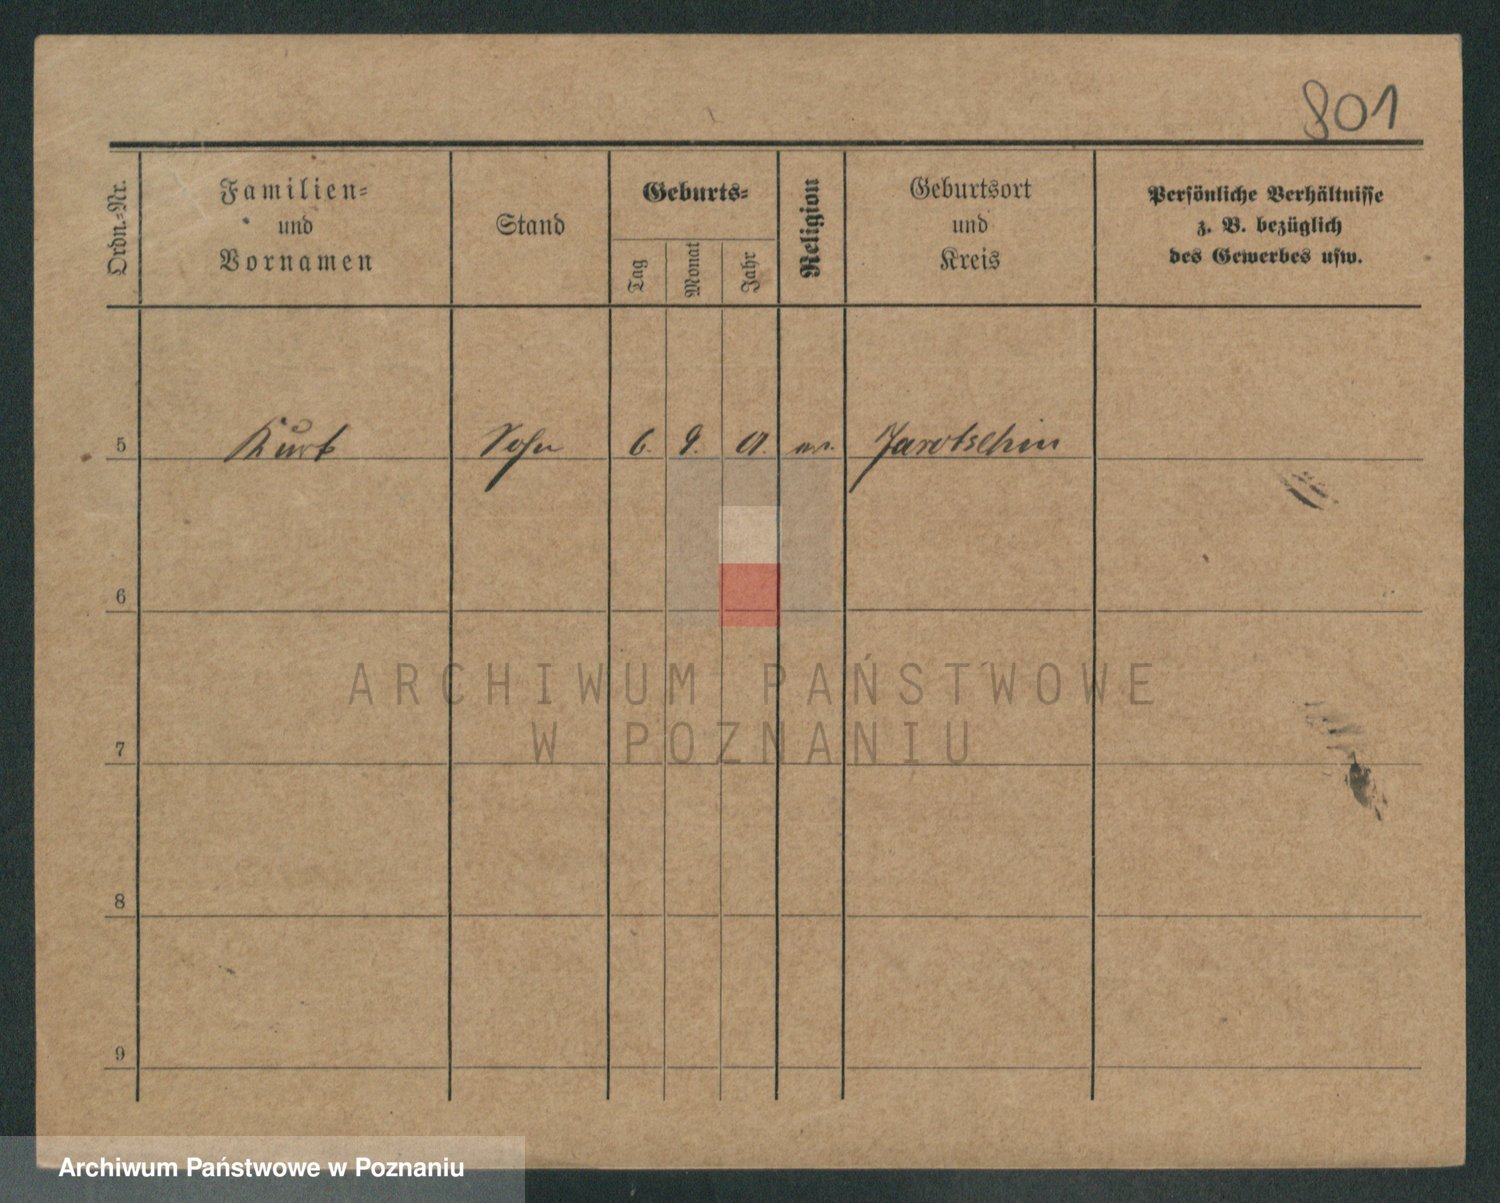 801
Ordn.-Nr.
Familien-
und
Vornamen
Stand
Geburts-
Tag
Monat
Jahr
Religion
Geburtsort
und
Kreis
Persönliche Verhältnisse
z. B. bezüglich
des Gewerbes usw.
5 Kurt Sohn 6. 9. 01. ev. Jarotschin
6
7
8
9
ARCHIWUM PAŃSTWOWE
W POZNANIU
Archiwum Państwowe w Poznaniu